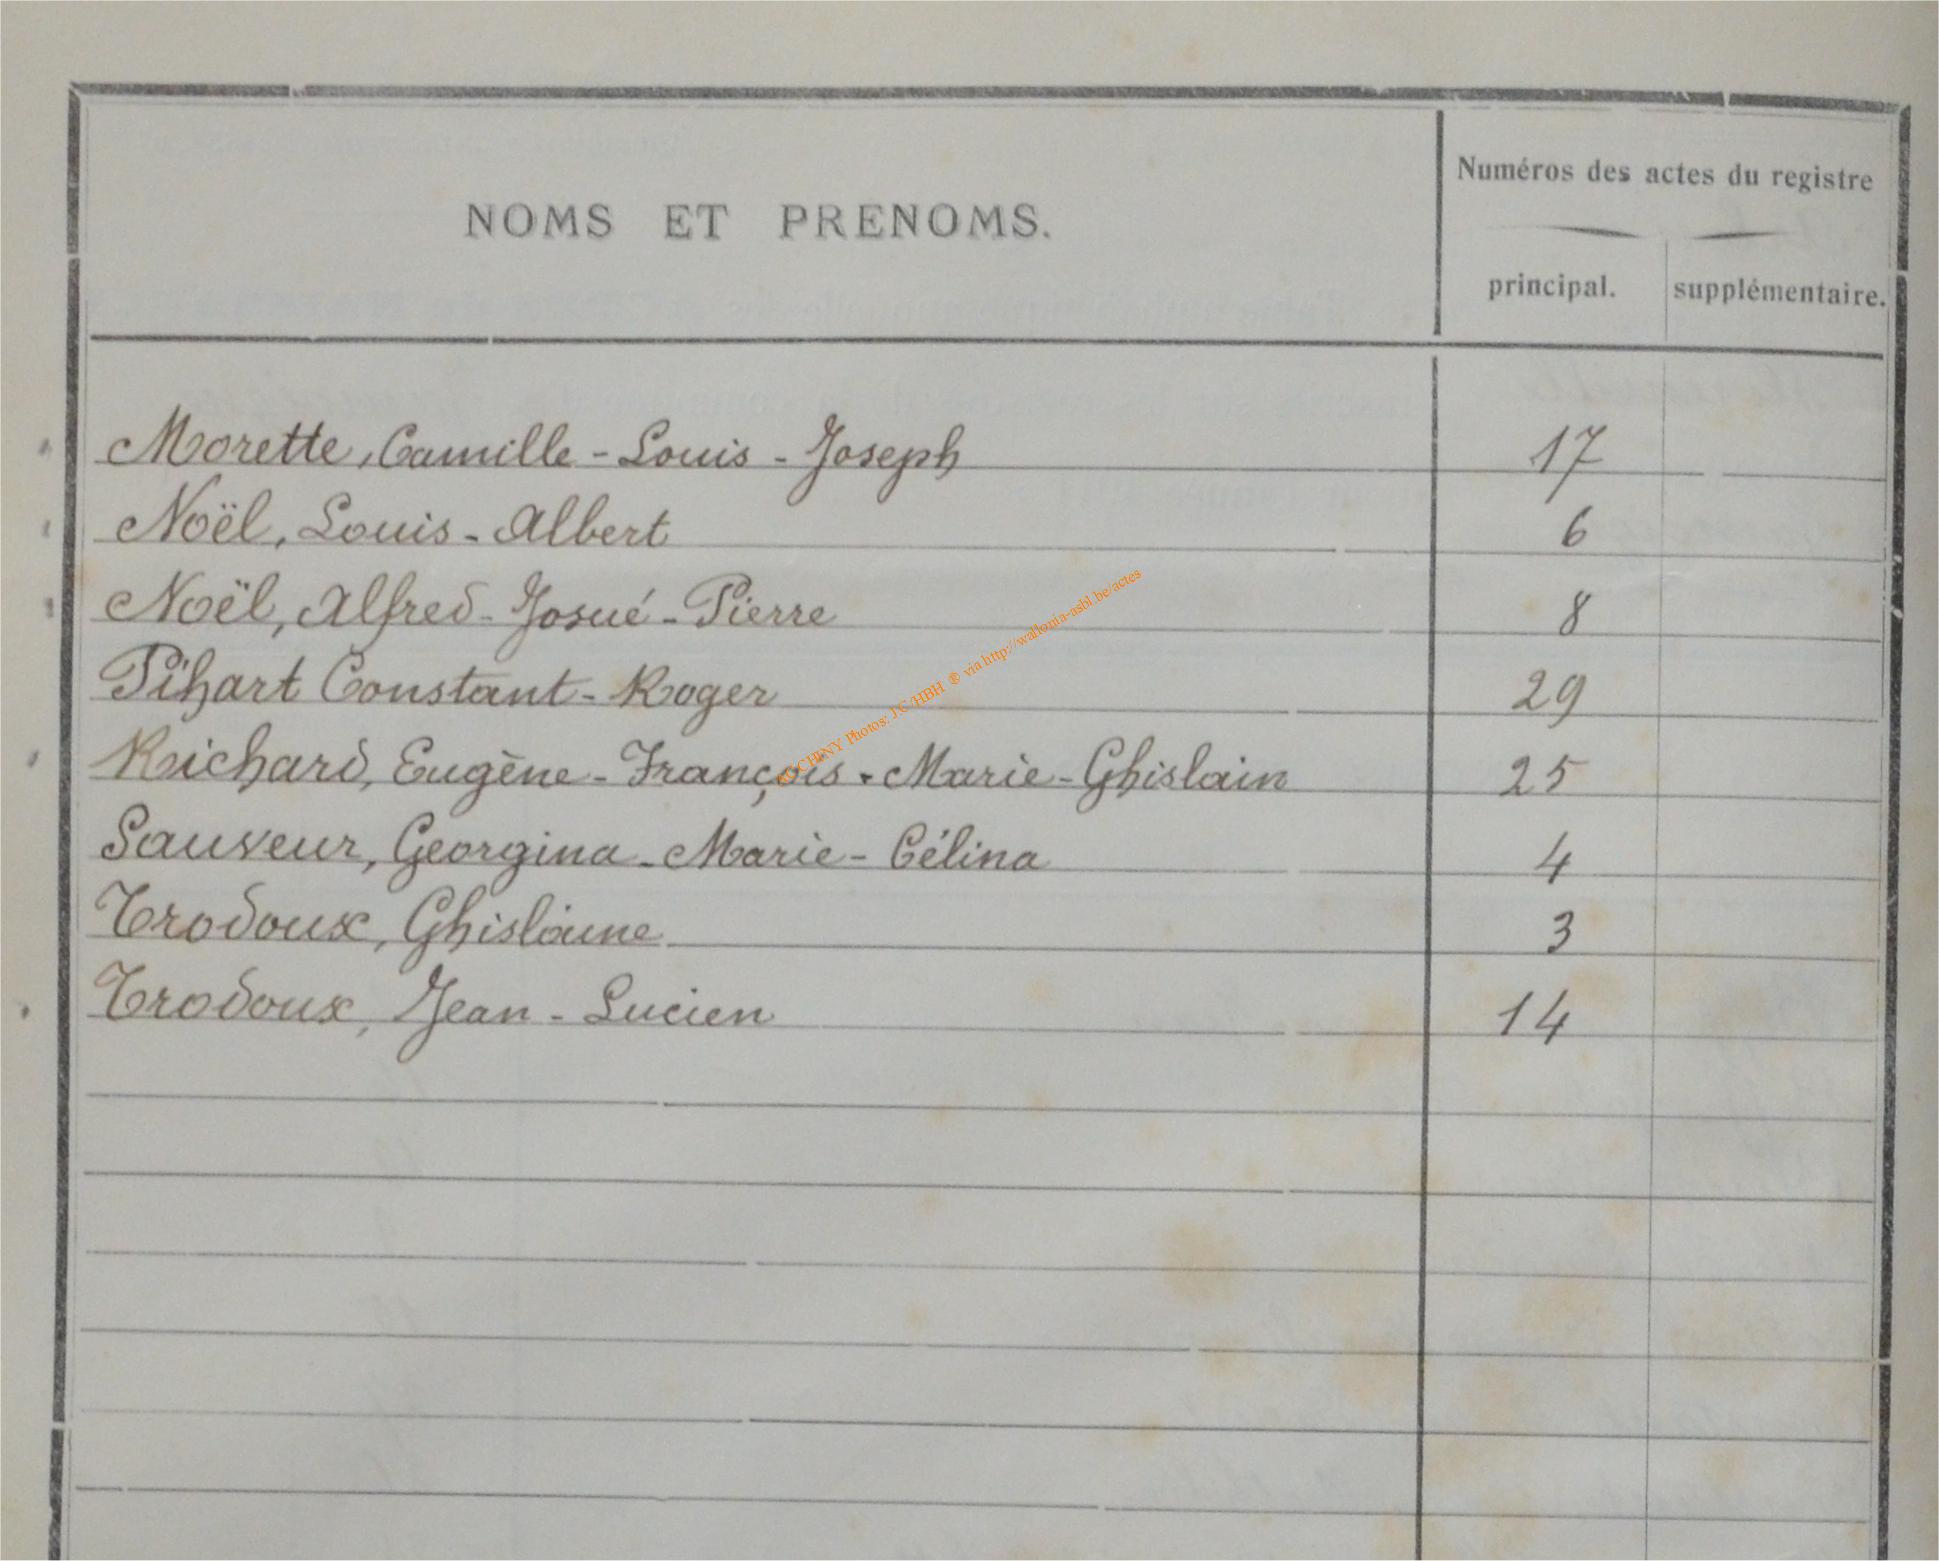 NOMS ET PRENOMS.
Numéros des actes du registre
principal. supplémentaire.
Morette, Camille - Louis - Joseph 17
Noël, Louis - Albert 6
Noël, Alfred - Josué - Pierre 8
Pihart Constant - Roger 29
Richard, Eugène - François - Marie - Ghislain 25
Sauveur, Georgina - Marie - Célina 4
Trodoux, Ghislaine 3
Trodoux, Jean - Lucien 14
Photos: J.C/HBH ® via http://wallonia-asbl.be/actes